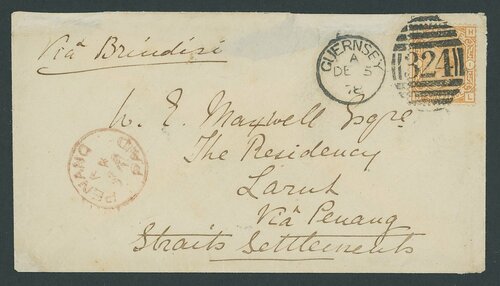 Via Brindisi
GUERNSEY
A
DE 5
78
324
W. E. Maxwell Esqre
The Residency
Larut
Via Penang
Straits Settlements
PENANG
PAID